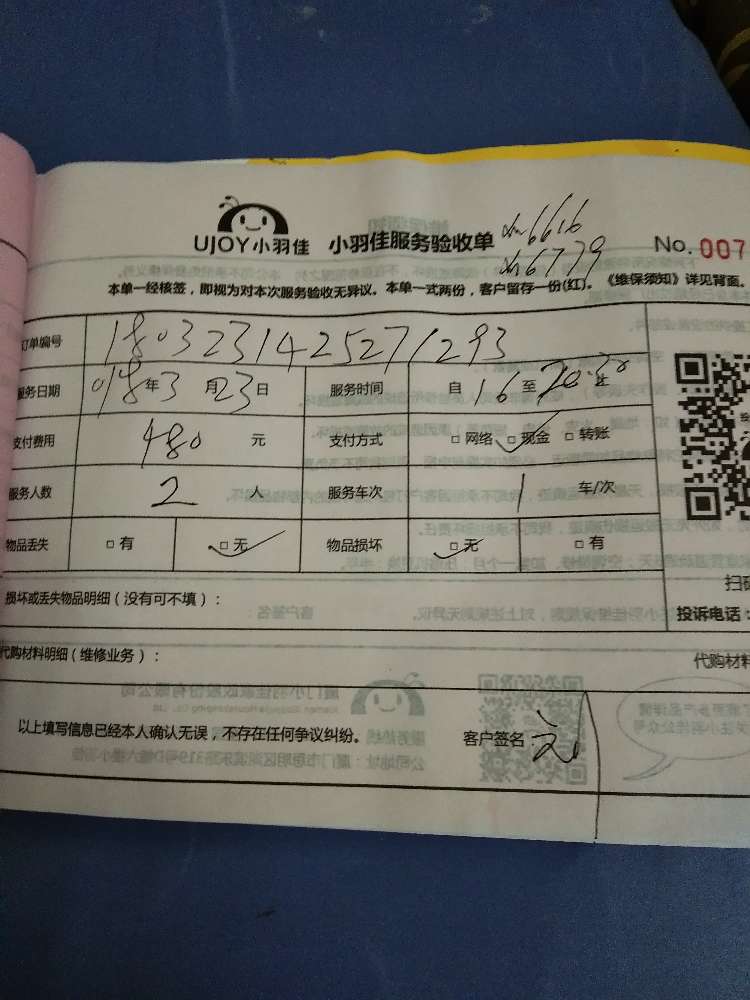 UJOY小羽佳 小羽佳服务验收单 No. 007
xm6616
xm6779
本单一经核签，即视为对本次服务验收无异议。本单一式两份，客户留存一份(红)。《维保须知》详见背面。
订单编号 1803231425271293
服务日期 018年3月23日 服务时间 自16至20:30
支付费用 480元 支付方式 □网络 □现金 □转账
服务人数 2人 服务车次 1车/次
物品丢失 □有 □无 物品损坏 □无 □有
损坏或丢失物品明细（没有可不填）：
扫码
投诉电话：
代购材料明细（维修业务）： 代购材料
以上填写信息已经本人确认无误，不存在任何争议纠纷。 客户签名：